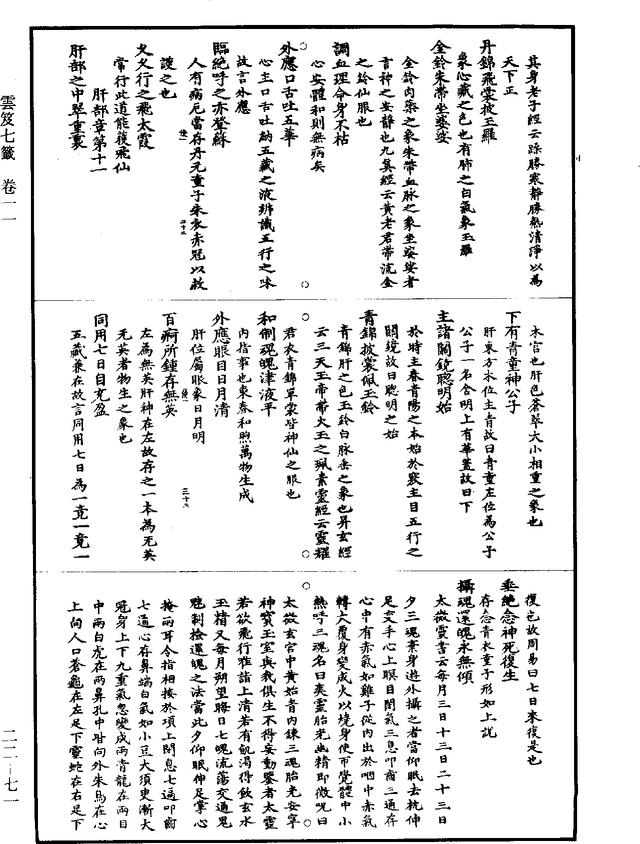 其身老子經云躁勝寒靜勝熱清淨以為
天下正
丹錦飛裳披玉羅
象心藏之色也有肺之白氣象玉羅
金鈴朱帶坐婆娑
金鈴肉藥之象朱帶血脉之象坐婆娑者
言神之安靜也九真經云黃老君帶流金
之鈴仙服也
調血理命身不枯
心安體和則無病矣
外應口舌吐五華
心主口舌吐納五藏之液辨識五行之味
故言外應
臨絕呼之亦登蘇
人有病厄當存丹元童子朱衣赤冠以救
護之也
久久行之飛太霞
常行此道能復飛仙
肝部章第十一
肝部之中翠重裏
木宮也肝色蒼翠大小相重之象也
下有青童神公子
肝東方木位主青故曰青童左位為公子
公子一名含明上有華蓋故曰下
主諸關鏡聰明始
於時主春青陽之本始於竅主目五行之
關鏡故曰聰明之始
青錦披裳佩玉鈴
青錦肝之色玉鈴白脉垂之象也昇玄經
云三天玉帝帶火玉之珮素靈經云靈耀
君衣青錦單裳皆神仙之服也
和制魂魄津液平
內指事也東春和煦萬物生成
外應眼目日月清
肝位屬眼象日月明
百痾所鍾存無英
左為無英肝神在左故存之一本為无英
无英者物生之象也
同用七日自充盈
五藏兼在故言同用七日為一竟一竟一
復也故周易曰七日來復是也
垂絕念神死復生
存念青衣童子形如上說
攝魂還魄永無傾
太微靈書云每月三日十三日二十三日
夕三魂棄身遊外攝之者當仰眠去枕伸
足交手心上瞑目閉氣三息叩齒三通存
心中有赤氣如雞子從內出於咽中赤氣
轉大覆身變成火以燒身使帀覺體中小
熱呼三魂名曰爽靈胎光幽精即微呪曰
太微玄宮中黃始青內鍊三魂胎光安寧
神寶玉室與我俱生不得妄動鑒者太靈
若欲飛行唯詣上清若有飢渴得飲玄水
玉精又每月朔望晦日七魄流蕩交通鬼
魅制檢還魄之法當此夕仰眠伸足掌心
掩兩耳令指相接於項上閉息七通叩齒
七通心存鼻端白氣如小豆大須臾漸大
冠身上下九重氣忽變成兩青龍在兩目
中兩白虎在兩鼻孔中皆向外朱鳥在心
上向人口蒼龜在左足下靈蛇在右足下
雲笈七籤 卷一一
二二—七一